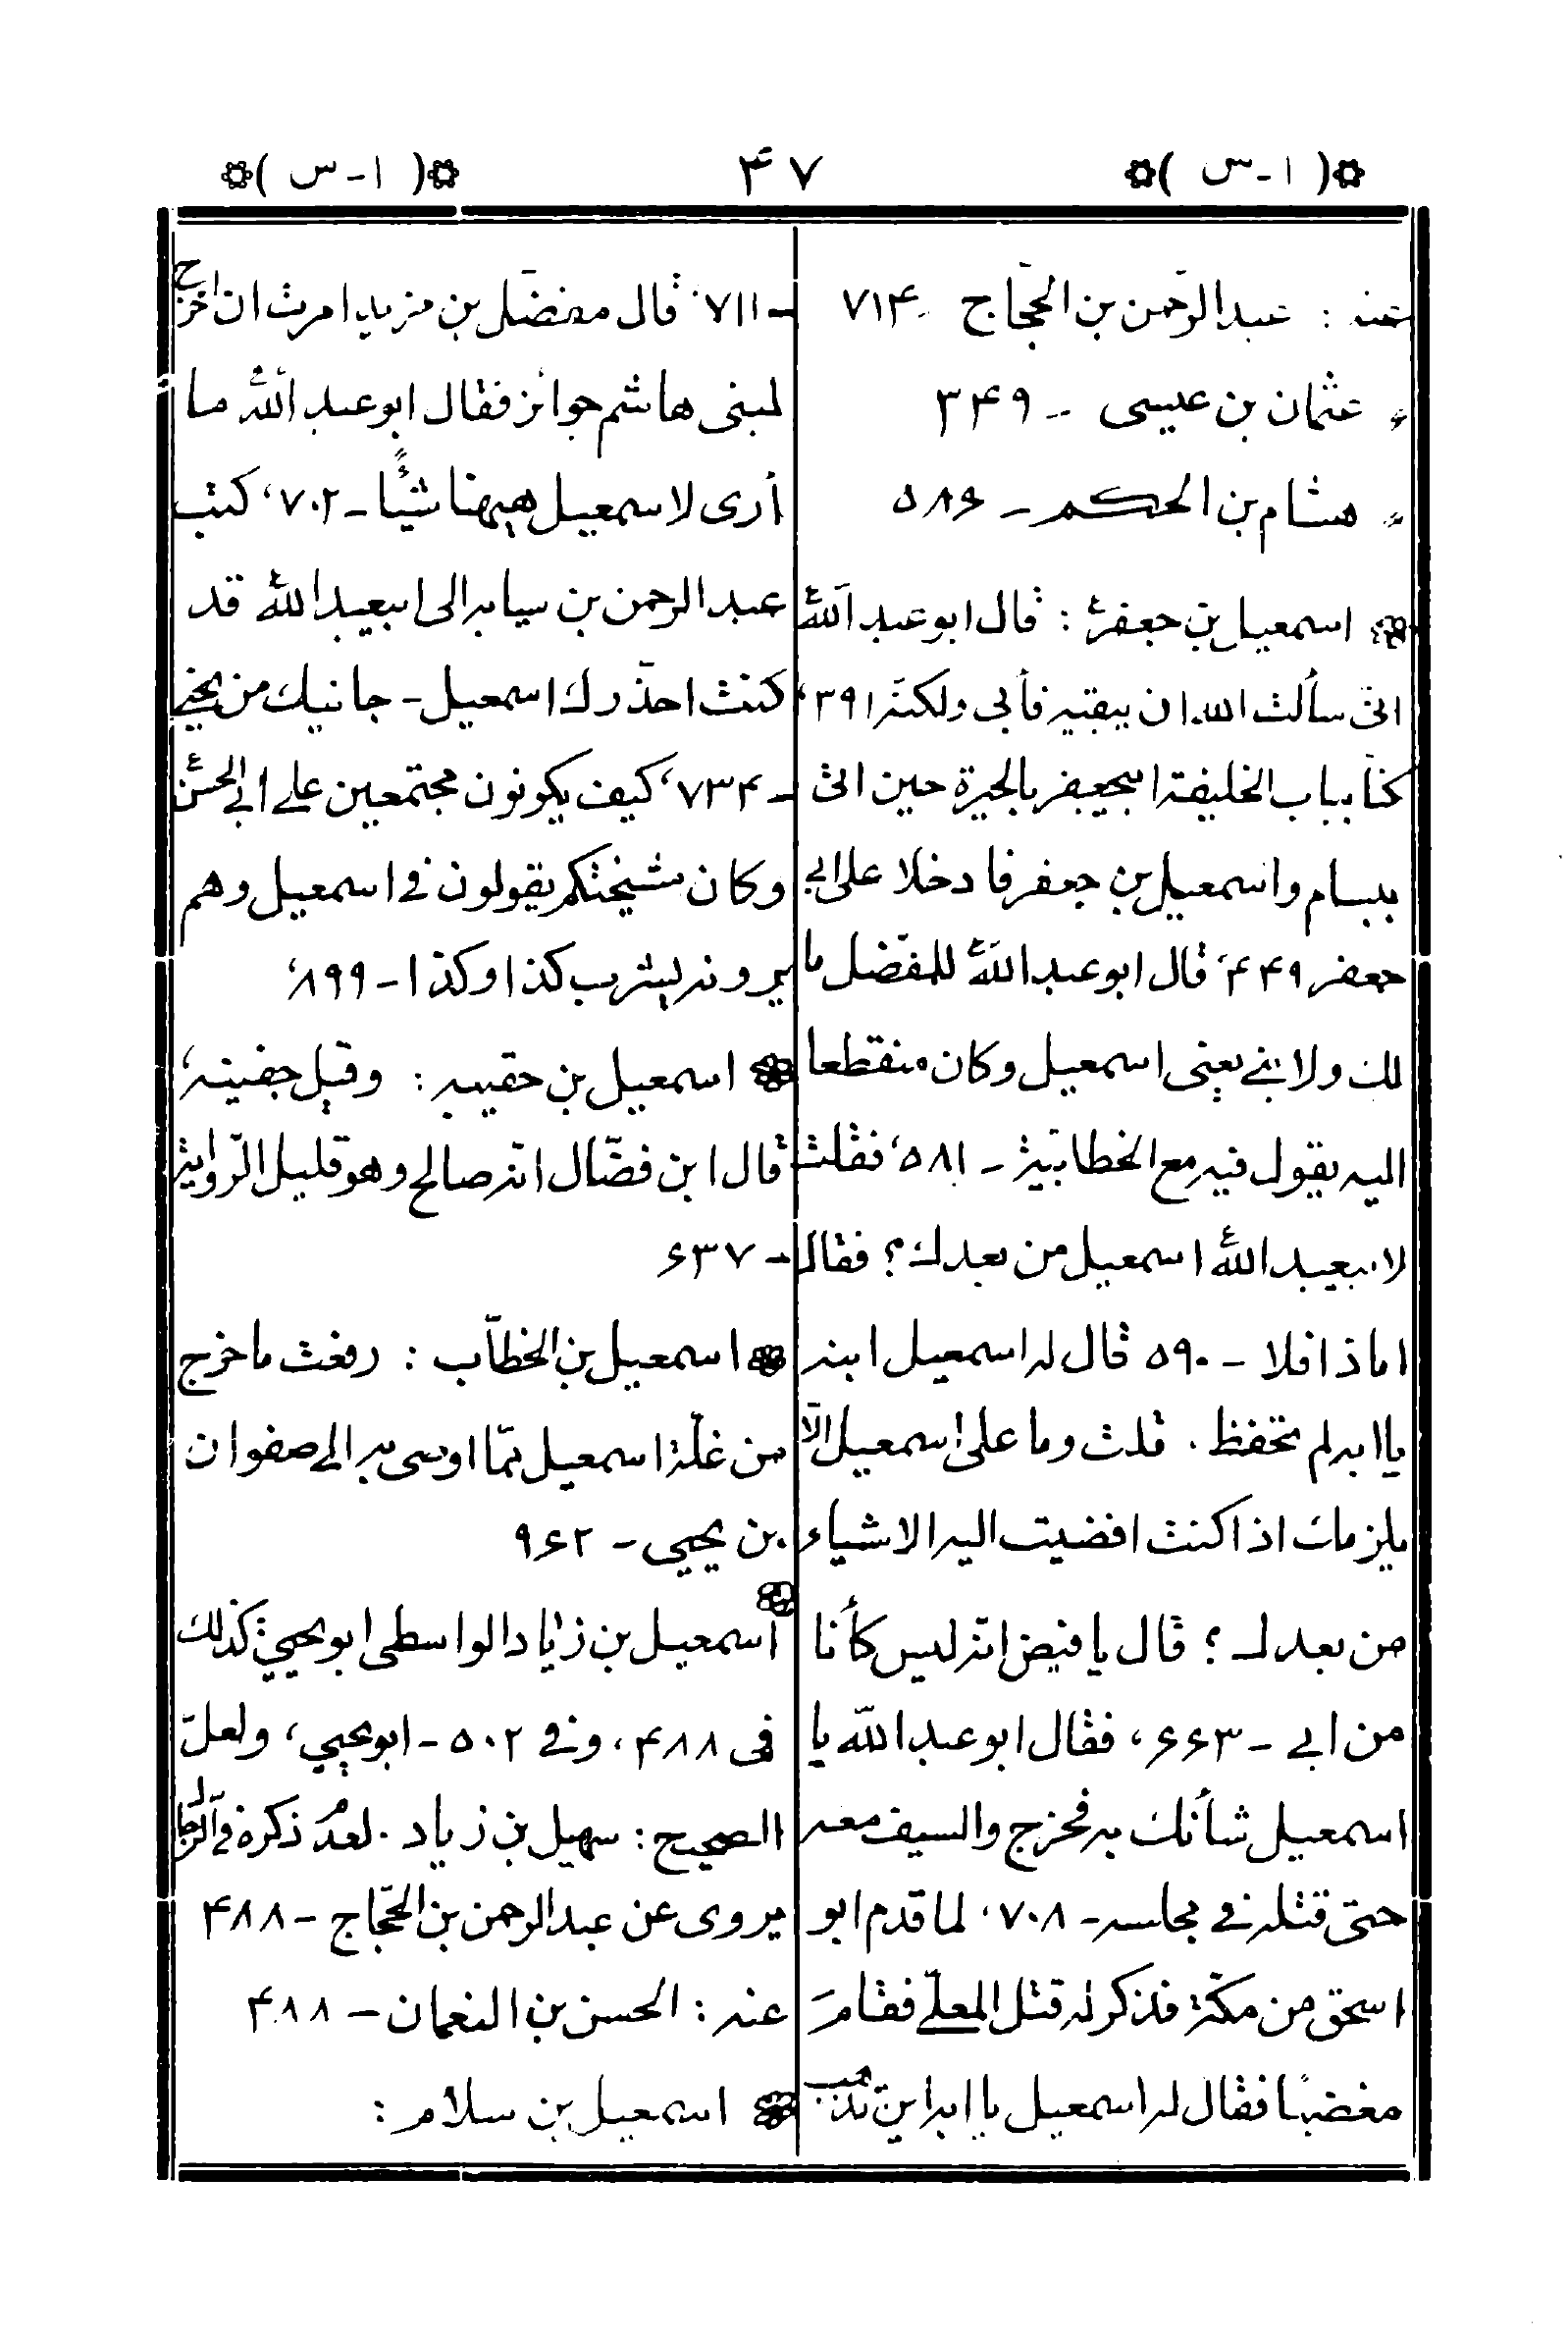 ❁( ا-س )❁ ۴۷ ❁( ا-س )❁
عنه : عبد الرّحمن بن الحجّاج - ۷۱۴
〃 عثمان بن عيسى - ۳۴۹
〃 هشام بن الحكم - ۵۸۶
❁ اسمعيل بن جعفرؑ : قال ابو عبد اللهؑ
انى سألت الله ان يبقيه فأبى ولكنه ۳۹۱،
كنا بباب الخليفة ابيجعفر بالحيرة حين اتى
ببسام واسمعيل بن جعفر فادخلا على ابى
جعفر ۴۴۹، قال ابو عبد اللهؑ للمفضّل ما
لك ولابنى يعنى اسمعيل وكان منقطعا
اليه يقول فيه مع الخطابيّة - ۵۸۱، فقلت
لابيعبد اللهؑ اسمعيل من بعدك؟ فقال
اما ذا فلا - ۵۹۰ قال له اسمعيل ابنه
يا ابه لم تحفظ . قلت وما على اسمعيل الّا
يلزمك اذا كنت افضيت اليه الاشياء
من بعدك ؟ قال يا فيض انّه ليس كأنا
من ابى - ۶۶۳، فقال ابو عبد اللّه يا
اسمعيل شأنك به فخرج والسيف معه
حتى قتله فى مجلسه - ۷۰۸، لما قدم ابو
اسحق من مكّة فذكر له قتل المعلّى فقام
مغضبًا فقال له اسمعيل يا ابه اين تذهب
- ۷۱۱، قال مفضّل بن مزيد امرت ان اخرج
لبنى هاشم جوائز فقال ابو عبد اللهؑ ما
أرى لاسمعيل هيهنا شيئًا - ۷۰۲، كتب
عبد الرحمن بن سيابه الى ابيعبد اللهؑ قد
كنت احذّرك اسمعيل - جانيك من يجنى
- ۷۳۴، كيف يكونون مجتمعين على ابى الحسنؑ
وكان مشيختكم يقولون فى اسمعيل وهم
يرونه يشرب كذا وكذا - ۸۹۹،
❁ اسمعيل بن حقيبه : وقيل جفينه،
قال ابن فضّال انّه صالح وهو قليل الرّواية
- ۶۳۷
❁ اسمعيل بن الخطّاب : رفعت ما خرج
من غلّة اسمعيل بمّا اوسى به الى صفوان
بن يحيى - ۹۶۲
❁ اسمعيل بن زياد الواسطى ابو يحيى : كذلك
فى ۴۸۸، وفى ۵۰۲ - ابو يحيى، ولعلّ
الصحيح : سهيل بن زياد . لعدم ذكره فى الرجال
يروى عن عبد الرحمن بن الحجّاج - ۴۸۸
عنه : الحسن بن النعمان - ۴۸۸
❁ اسمعيل بن سلام :